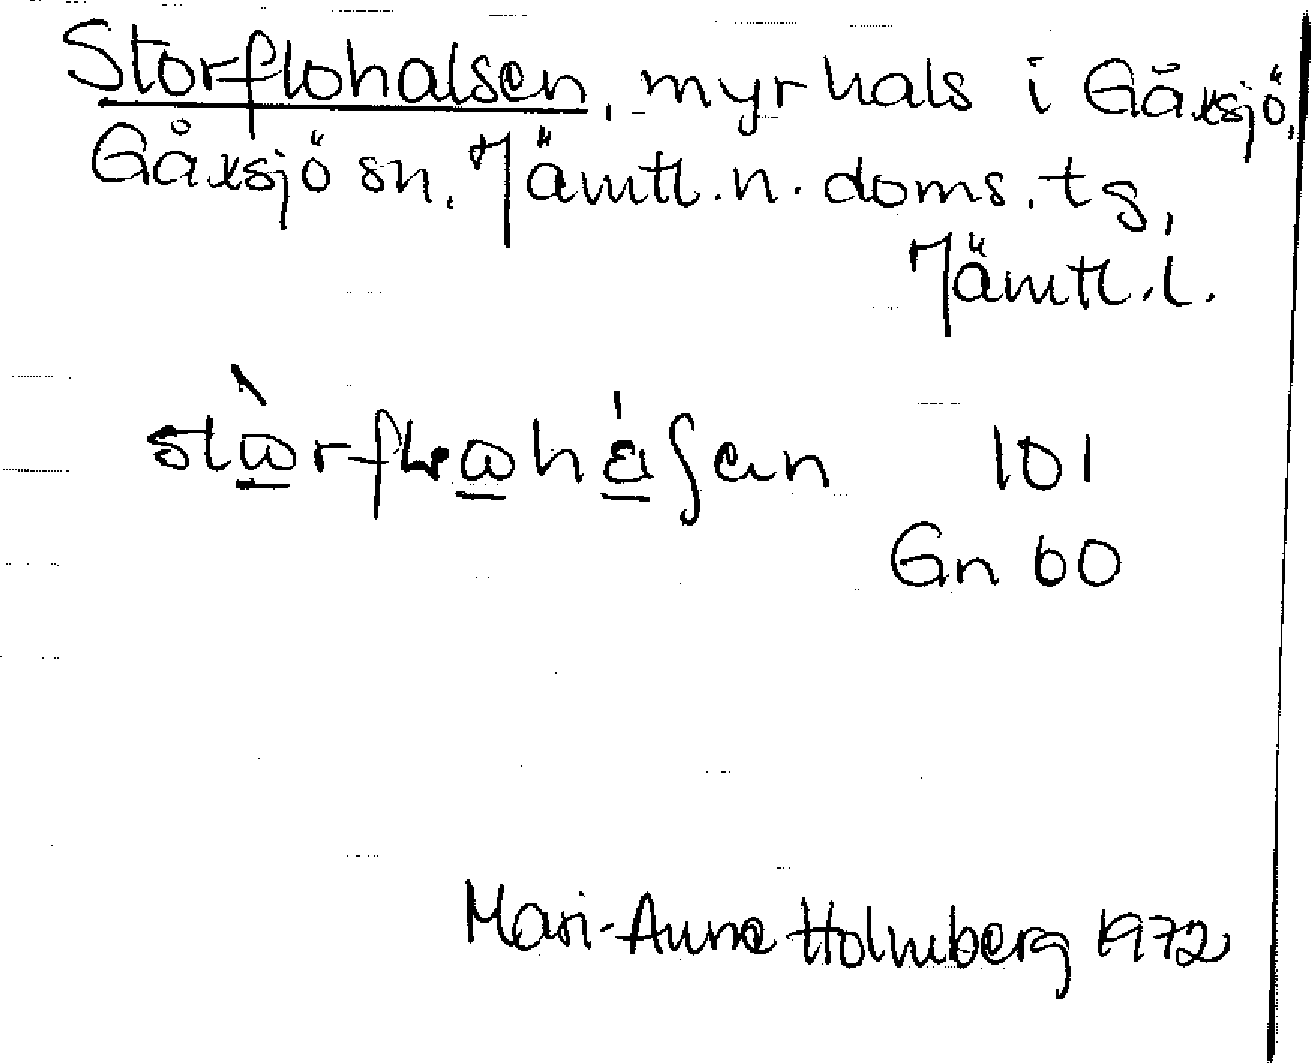 Storflohalsen, myrhals i Gåxsjö,
Gåxsjö sn. Jämtl. n. doms. tg,
Jämtl. l.
101
Gn 60
Mari-Anne Holmberg 1972